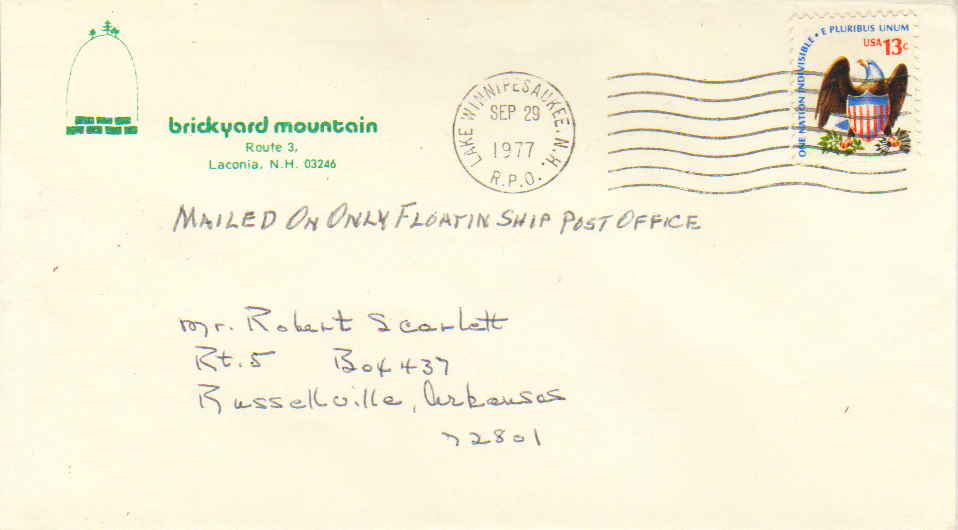 brickyard mountain
Route 3,
Laconia, N.H. 03246
LAKE WINNIPESAUKEE. N.H.
SEP 29
1977
R.P.O.
ONE NATION INDIVISIBLE • E PLURIBUS UNUM
USA 13c
MAILED ON ONLY FLOATIN SHIP POST OFFICE
Mr. Robert Scarlett
Rt. 5 Box 437
Russellville, Arkansas
72801